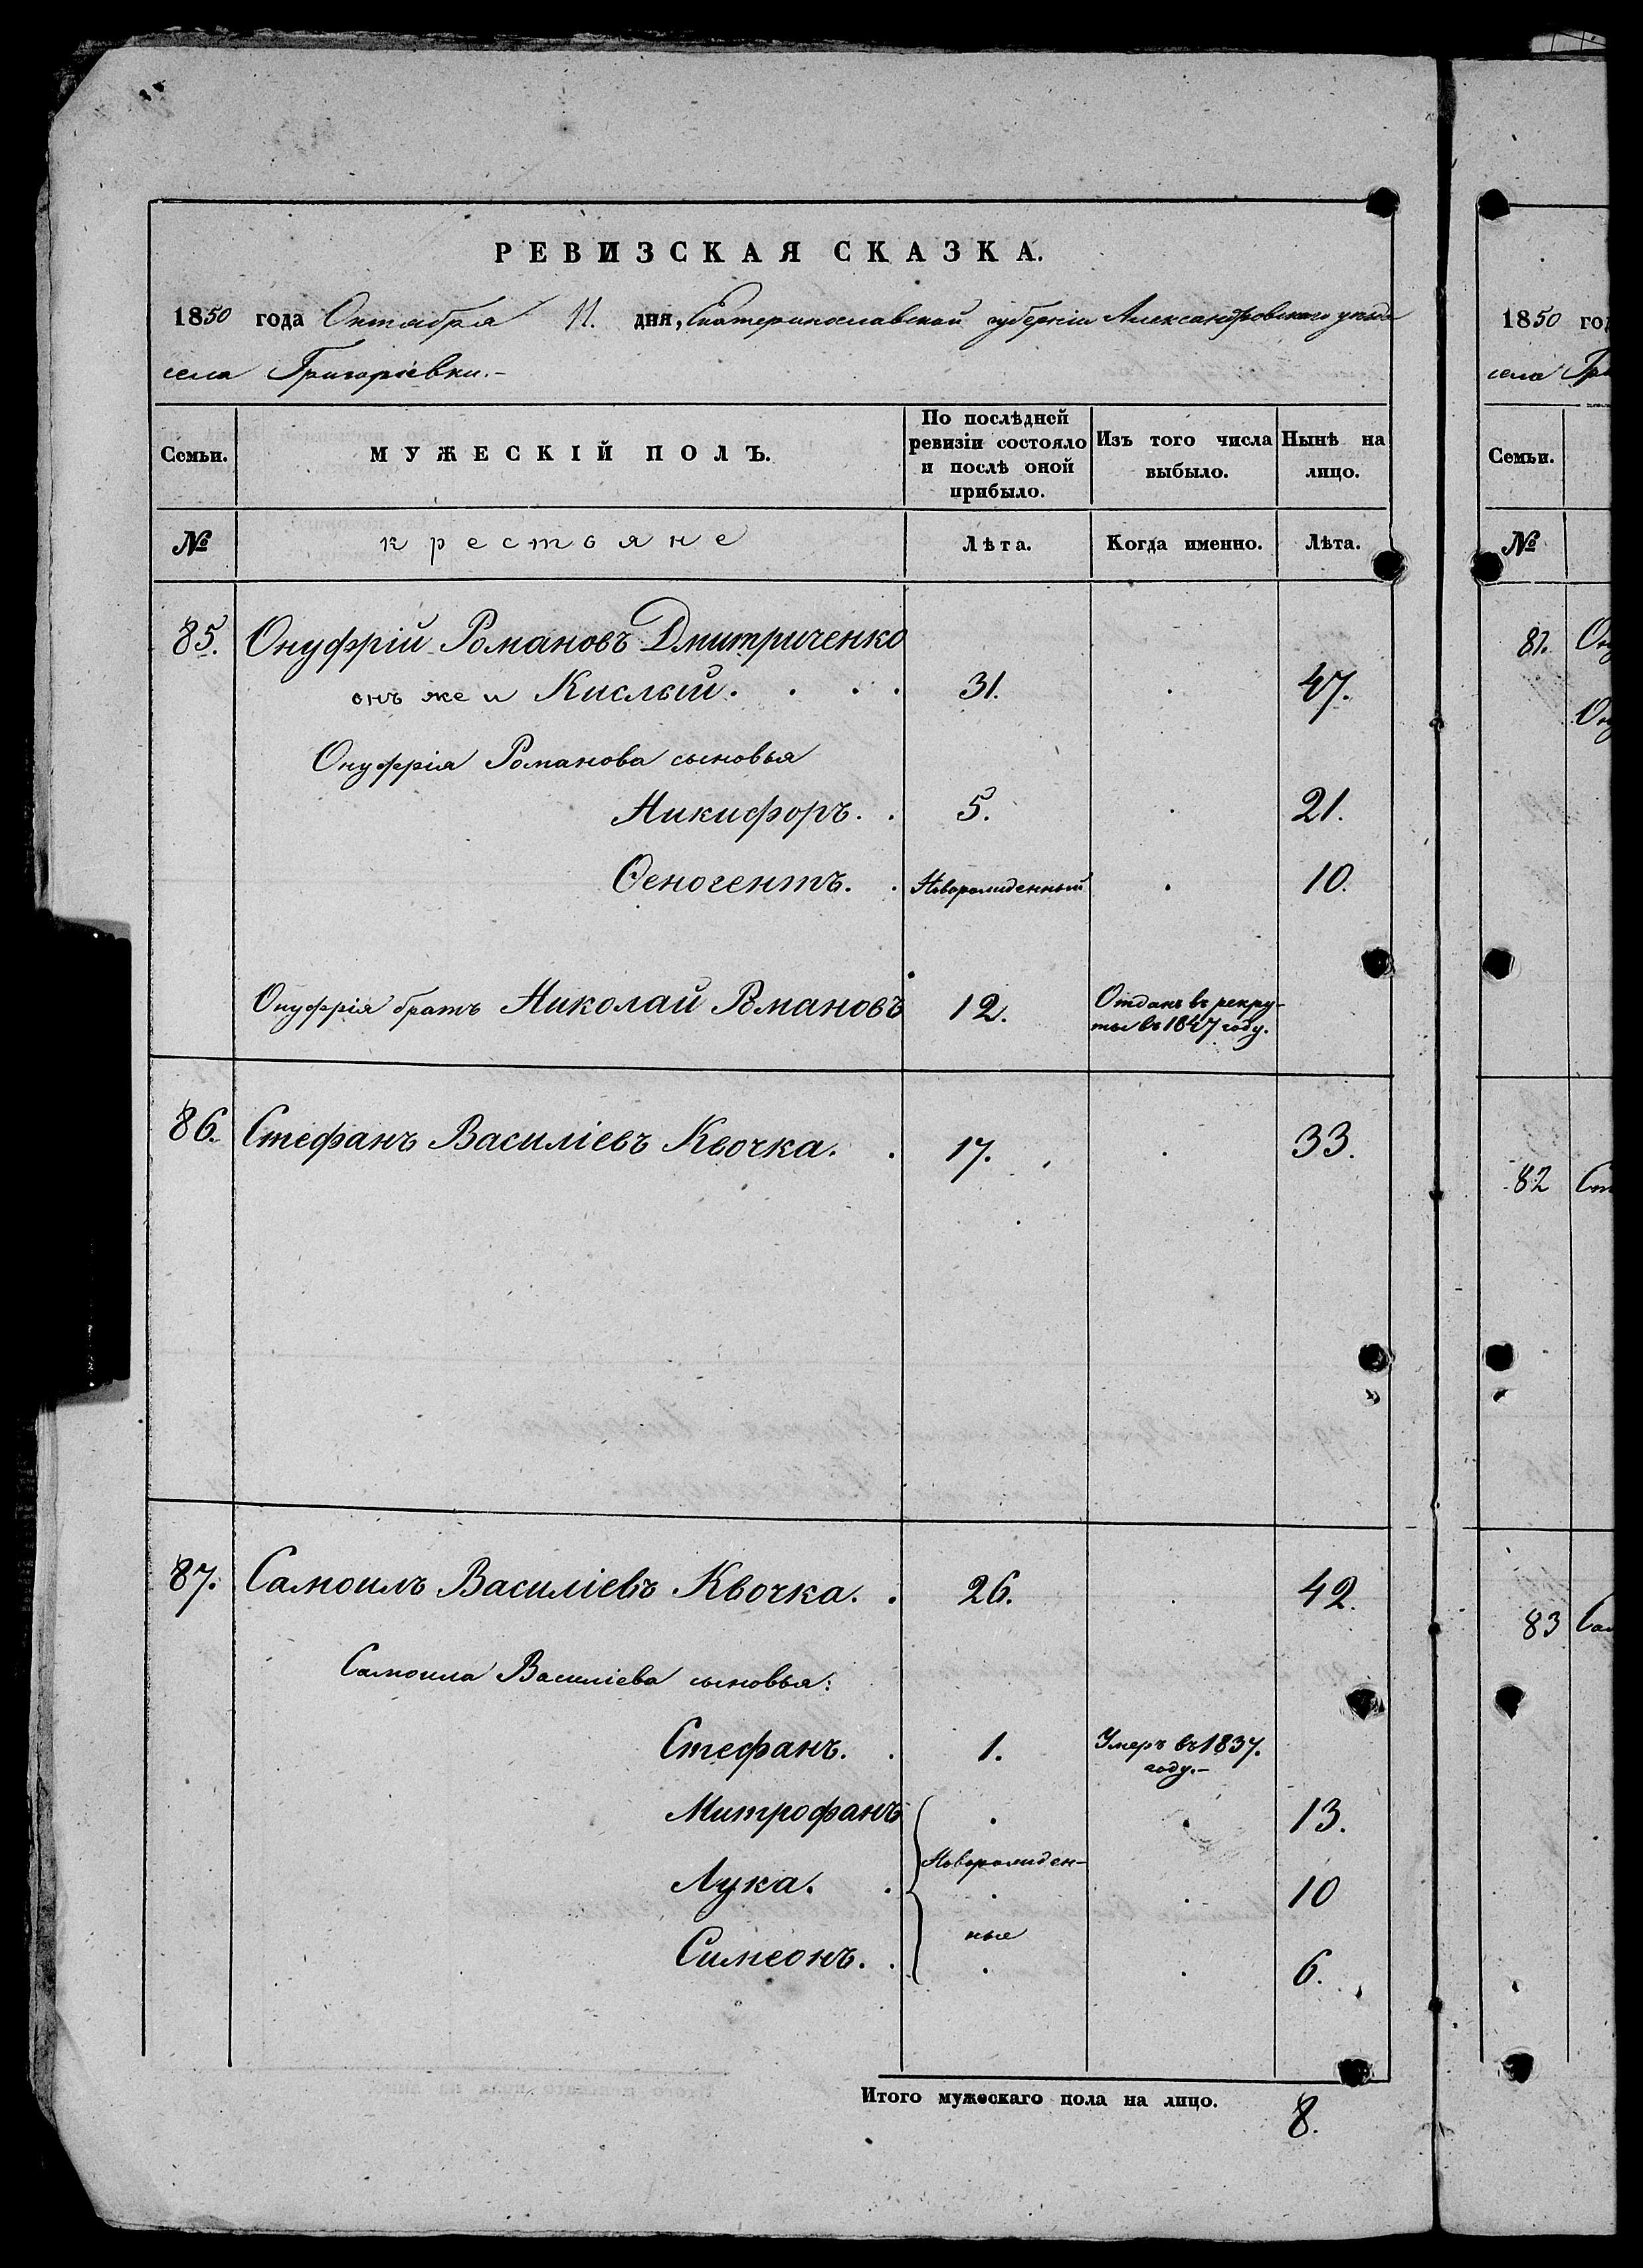 РЕВИЗСКАЯ СКАЗКА.
1850 года Октября 11. дня, Екатеринославской губерніи Александровскаго уезда
села Григоріевки.-
Семьи.
МУЖЕСКІЙ ПОЛЪ.
По послѣдней
ревизіи состояло
и послѣ оной
прибыло.
Изъ того числа
выбыло.
Нынѣ на
лицо.
№
крестьяне
Лѣта.
Когда именно.
Лѣта.
85. Онуфрій Романовъ Дмитриченко
онъ же и Кислый. . . . 31. . 47.
Онуфрія Романова сыновья
Никифоръ. . 5. . 21.
Ѳеногентъ. . Новорожденный . 10.
Онуфрія братъ Николай Романовъ 12. Отданъ въ рекру-
ты въ 1847 году.
86. Стефанъ Василіевъ Квочка. . 17. . 33.
87. Самоилъ Василіевъ Квочка. . 26. . 42.
Самоила Василіева сыновья:
Стефанъ. . 1. Умеръ въ 1837.
году.-
Митрофанъ . . 13.
Новорожден-
Лука. . . . 10
ные
Симеонъ. . . . 6.
Итого мужескаго пола на лицо. 8.
1850 год
села Гри
Семьи.
№
81. Ону
Ону
82 Сте
83 Сам